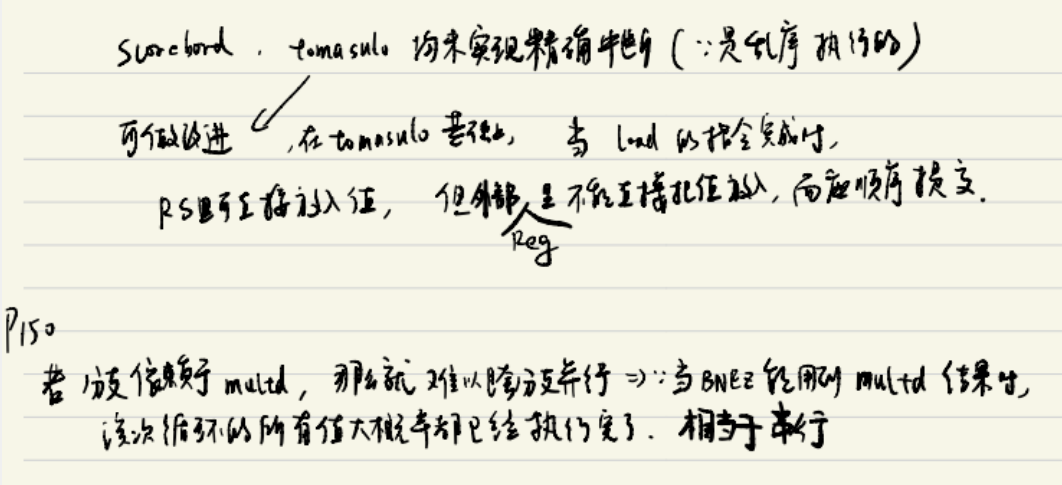 scorebord . tomasulo 均未实现精确中断 (∵是乱序执行的)
可做改进 , 在tomasulo基础上, 当 load 的指令完成时,
RS里可直接放入值, 但外部Reg是不能直接把值放入, 而应顺序提交.
P150
若分支依赖于 multd, 那么就难以跨分支并行 ⇒ ∵当BNEZ能用到 multd 结果时,
该次循环的所有值大概率都已经执行完了. 相当于串行